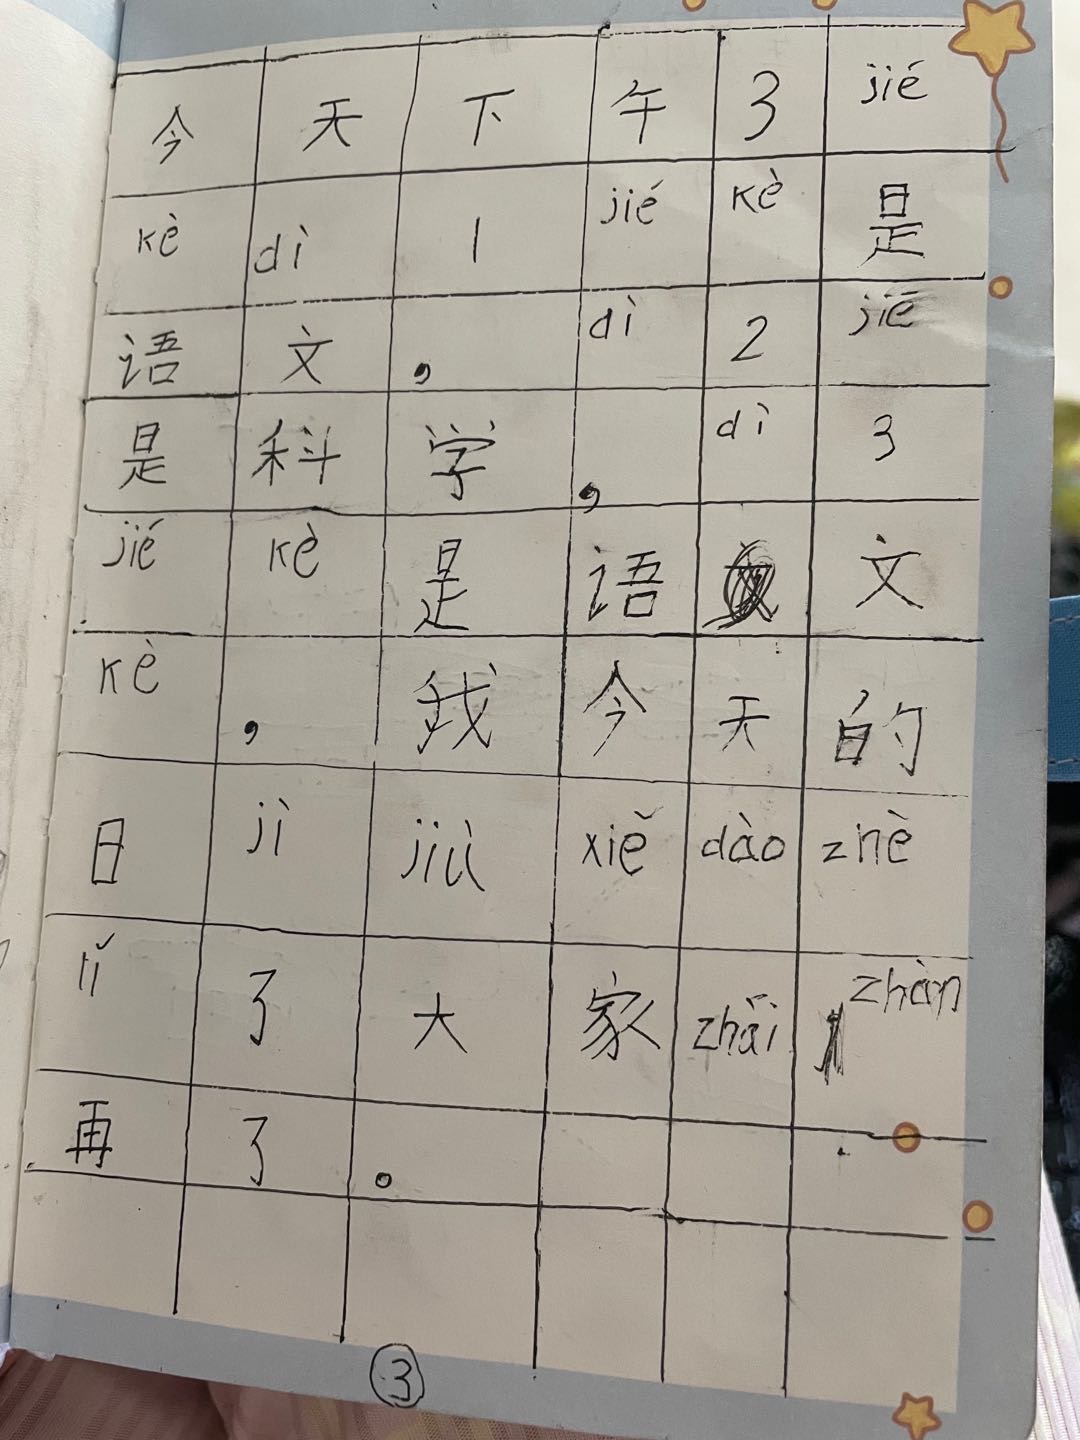 今天下午3jié
kèdì1jiékè是
语文，dì2jié
是科学，dì3
jiékè是语文
kè，我今天的
日jìjiùxiědàozhè
lǐ了大家zhǎizhàn
再了。
③